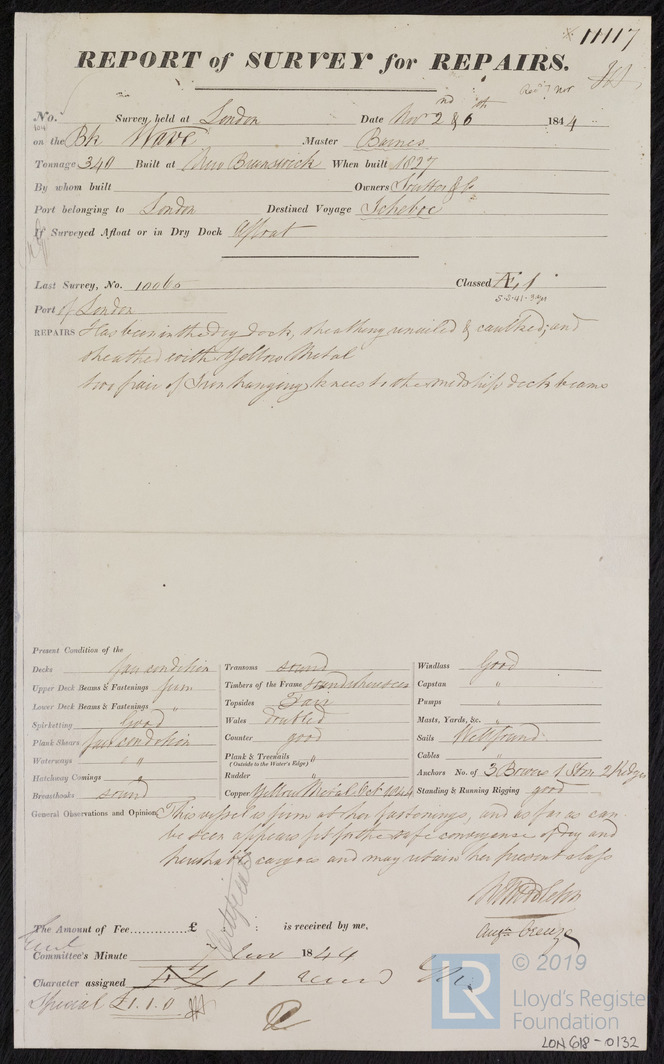 11117
REPORT of SURVEY for REPAIRS.
No. Survey held at London Date Nov 2nd & 6th 1844
on the Bk Wave Master Barnes
Tonnage 340 Built at New Brunswick When built 1827
By whom built Owners Soutter & Co
Port belonging to London Destined Voyage Ichaboe
If Surveyed Afloat or in Dry Dock Afloat
Last Survey, No. 10060 Classed Æ 1
Port of London
REPAIRS Has been in the dry dock, sheathing & caulked, and
sheathed with Yellow Metal
two pair of Iron hanging knees to the midship deck beams
Present Condition of the
Decks fair condition
Upper Deck Beams & Fastenings firm
Lower Deck Beams & Fastenings "
Spirketting Good
Plank Shears fair condition
Waterways "
Hatchway Comings "
Breasthooks sound
Transoms sound
Timbers of the Frame sound where seen
Topsides Fair
Wales doubled
Counter good
Plank & Treenails "
(Outside to the Water's Edge)
Rudder "
Copper Yellow Metal Oct 1844
Windlass Good
Capstan "
Pumps "
Masts, Yards, &c. "
Sails Well found
Cables "
Anchors No. of 3 Bowers 1 Strm 2 Kedges
Standing & Running Rigging good
General Observations and Opinion This vessel is firm at her fastenings, and as far as can
be seen appears fit for the safe conveyance of dry and
perishable cargoes and may retain her present class
Augn Creuze
The Amount of Fee £ : : is received by me,
Committee's Minute 7 Nov 1844
Character assigned Æ 1
Special £1.1.0
LR
© 2019
Lloyd's Register
Foundation
LON 618-0132